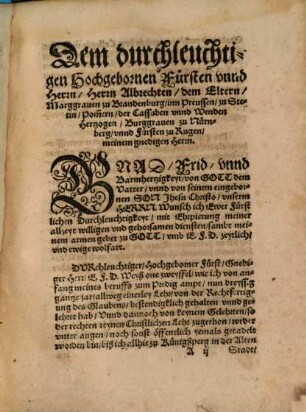 Dem durchleuchti-
gen Hochgebornen Fürsten vnnd
Herrn / Herrn Albrechten / dem Eltern /
Marggrauen zu Brandenburg / inn Preussen / zu Ste-
tin / Pomern / der Cassuben vnnd Wenden
Hertzogen / Burggrauen zu Nürn-
berg / vnnd Fürsten zu Rugen /
meinem gnedigen Herrn.
GNAD / Frid / vnnd
Barmhertzigkeyt / von GOTT dem
Vatter / vnnd von seinem eingebor-
nen SON Jhesu Christo / vnserm
HERRN Wunsch ich Ewer Fürst
lichen Durchleuchtigkeyt / mit Erbietung meiner
allzeyt willigen vnd gehorsamen diensten sambt mei-
nem armen gebet zu GOTT / vmb E. F. D. zeytlichs
vnd ewigs wolfart.
DVRchleuchtiger / Hochgeborner Fürst / Gnedi-
ger Herr / E. F. D. Weyß one zweyffel / wie ich von an-
fang meines beruffs zum Predig ampt / nun dreyssig
gantze jar / allweg einerley Lehr / von der Rechtfertig-
ung des Glaubens / bestendigklich gehalten vnnd ge-
lehret hab / Vnnd dannoch von keynem Gelehrten / so
der rechten reynen Christlichen Lehr zugethon / weder
vnter augen / noch sonst öffentlich yemals getadelt
worden bin / biß ich allhie zu Künigßperg in der Alten
A ij Stadt /